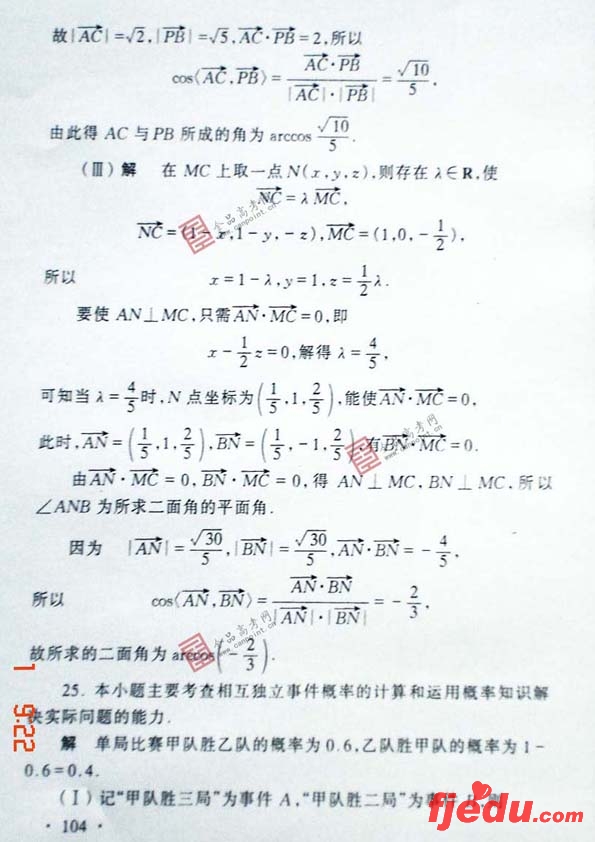 故|AC|=√2,|PB|=√5,AC·PB=2,所以
cos⟨AC,PB⟩=AC·PB/(|AC|·|PB|)=√10/5,
由此得 AC 与 PB 所成的角为 arccos √10/5.
(Ⅲ) 解 在 MC 上取一点 N(x,y,z),则存在 λ∈R,使
NC=λMC,
NC=(1-x,1-y,-z),MC=(1,0,-1/2),
所以 x=1-λ,y=1,z=1/2λ.
要使 AN⊥MC,只需AN·MC=0,即
x-1/2z=0,解得 λ=4/5,
可知当 λ=4/5时,N 点坐标为(1/5,1,2/5),能使AN·MC=0,
此时,AN=(1/5,1,2/5),BN=(1/5,-1,2/5),有BN·MC=0.
由AN·MC=0,BN·MC=0,得 AN⊥MC,BN⊥MC,所以
∠ANB 为所求二面角的平面角.
因为 |AN|=√30/5,|BN|=√30/5,AN·BN=-4/5,
所以 cos⟨AN,BN⟩=AN·BN/(|AN|·|BN|)=-2/3,
故所求的二面角为 arccos(-2/3).
25. 本小题主要考查相互独立事件概率的计算和运用概率知识解
决实际问题的能力.
解 单局比赛甲队胜乙队的概率为 0.6,乙队胜甲队的概率为 1-
0.6=0.4.
(Ⅰ)记“甲队胜三局”为事件 A,“甲队胜二局”为事件
·104·
金品高考网
www.canpoint.cn
金品高考网
www.canpoint.cn
金品高考网
www.canpoint.cn
1 9:22
fjedu.com